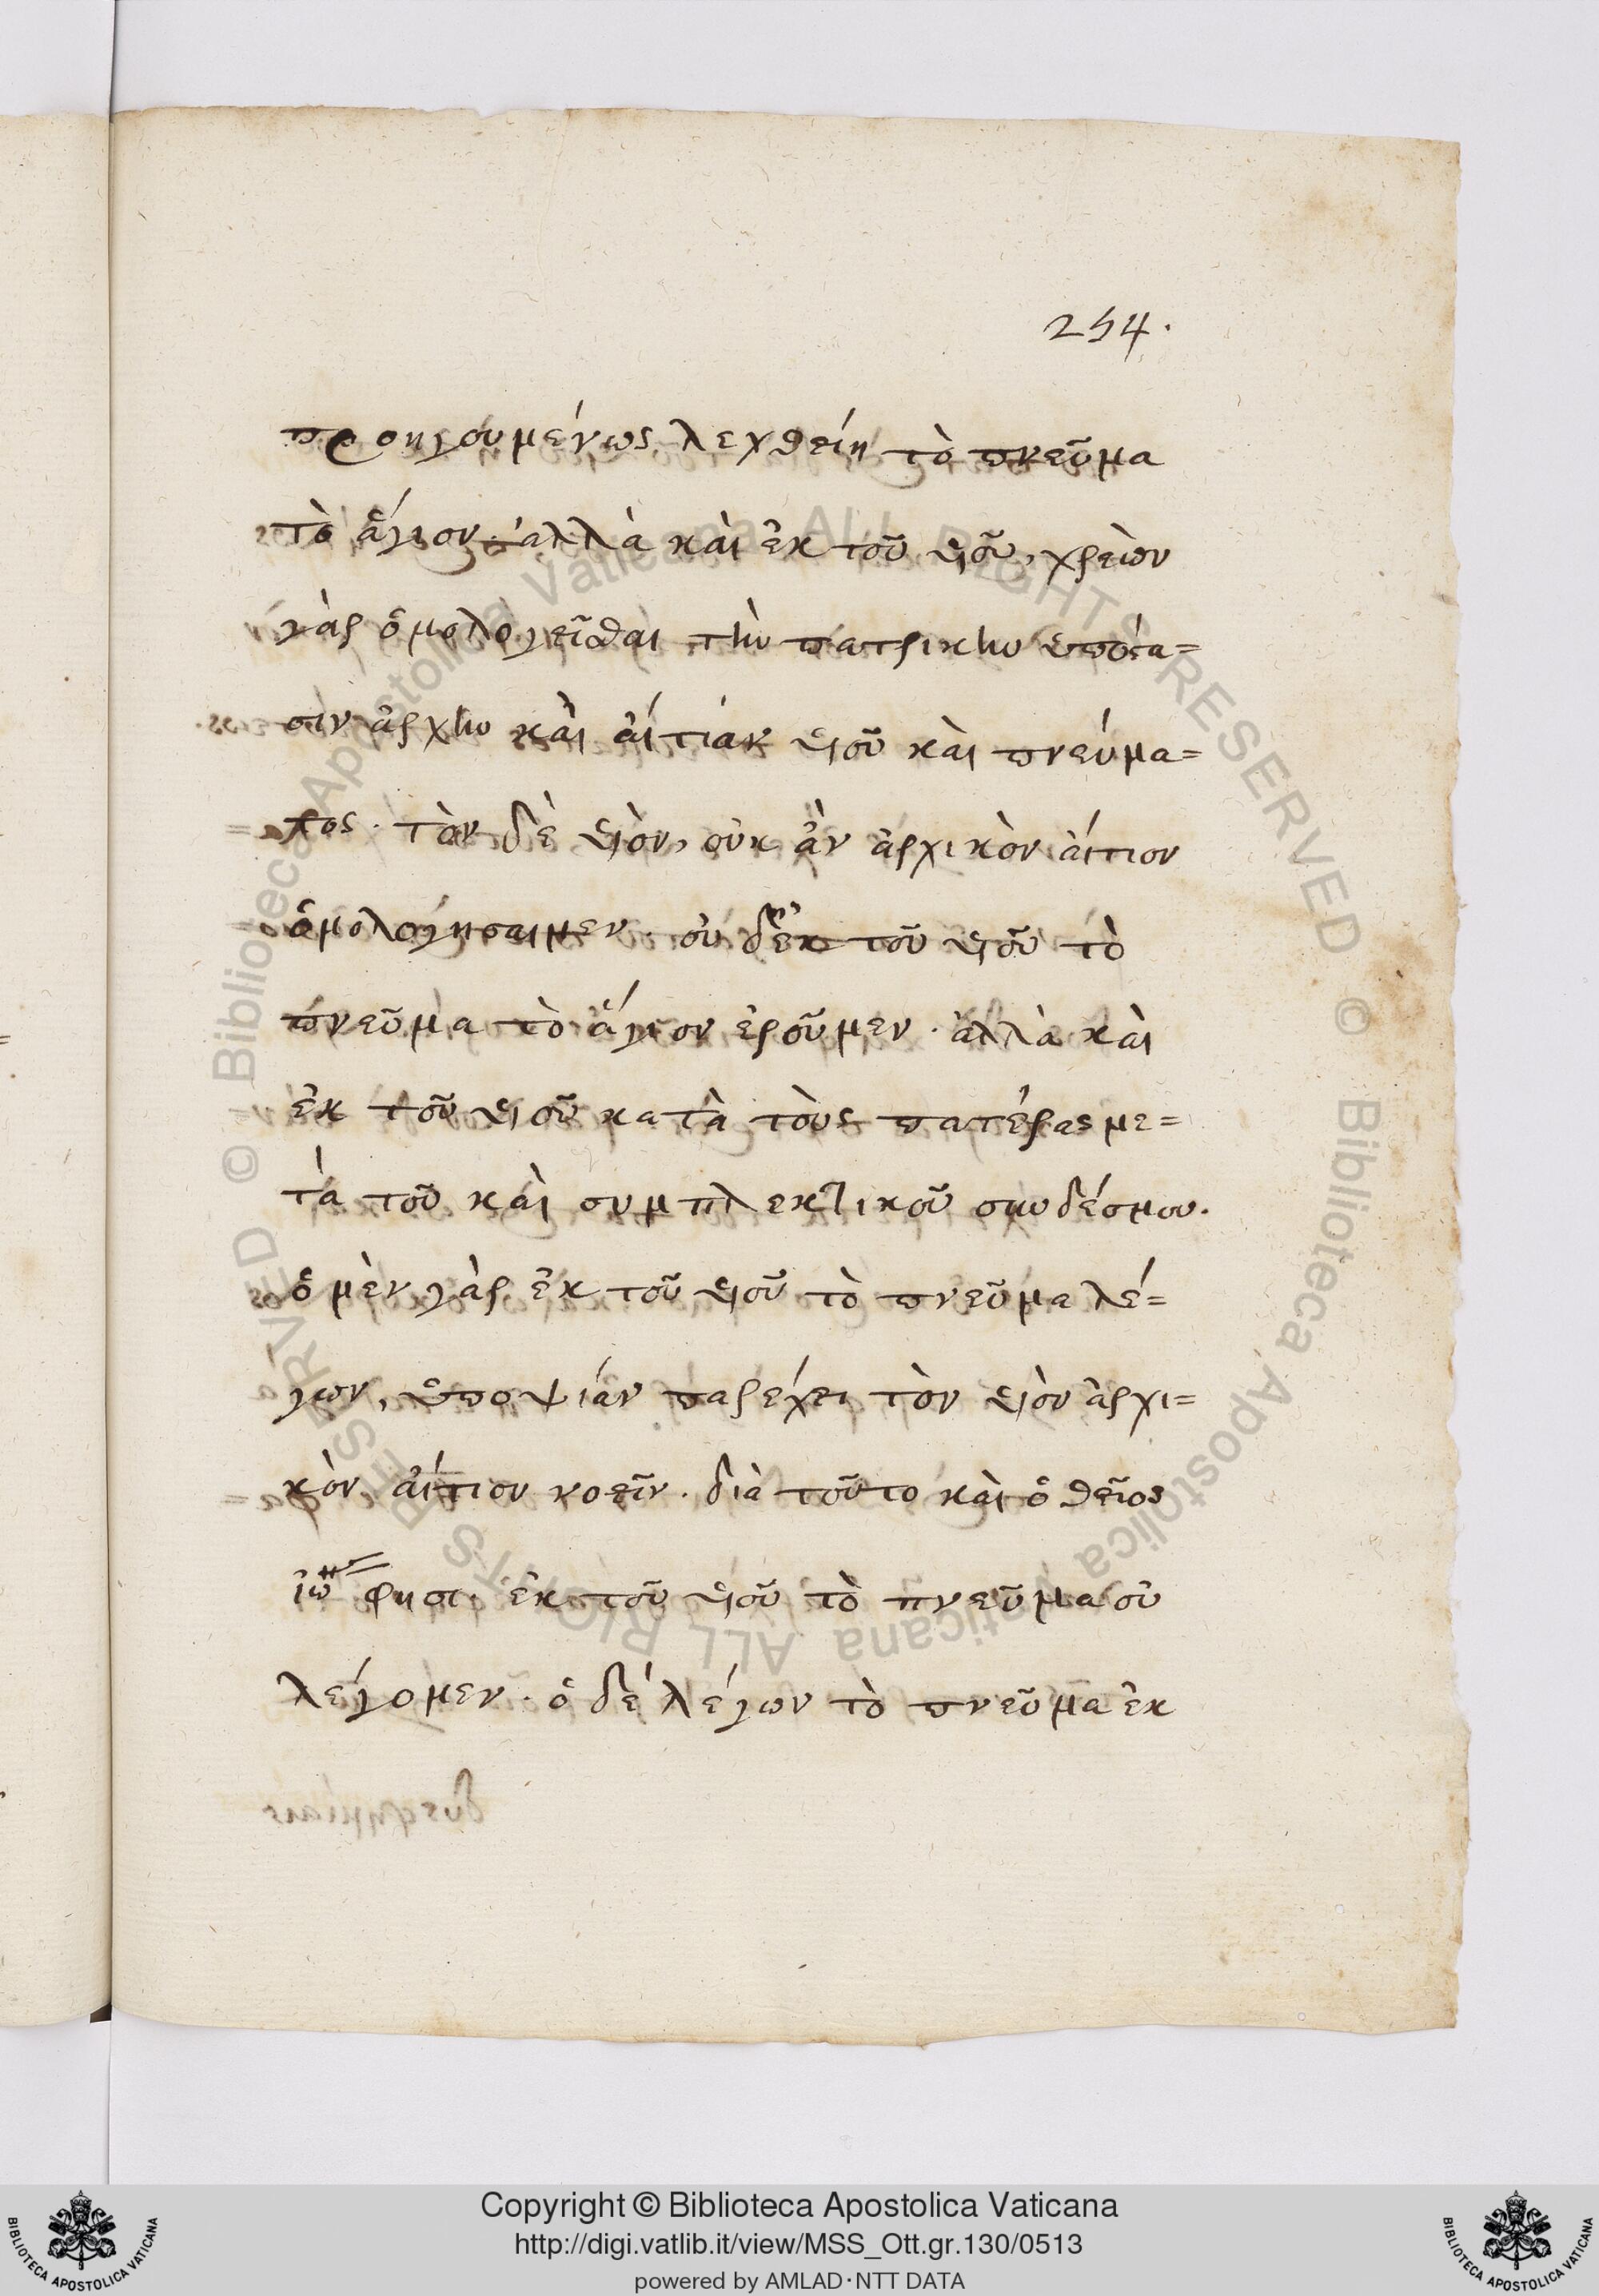 254.
προηγουμένως λεχθείη τὸ πνεῦμα
τὸ ἅγιον. ἀλλὰ καὶ ἐκ τοῦ υἱοῦ, χρεὼν
γὰρ ὁμολογεῖσθαι τὴν πατρικὴν ὑπόστα=
σιν ἀρχὴν καὶ αἰτίαν υἱοῦ καὶ πνεύμα=
τος. τὸν δὲ υἱὸν, οὐκ ἂν ἀρχικὸν αἴτιον
ὁμολογήσαιμεν. οὐ δ' ἐκ τοῦ υἱοῦ τὸ
πνεῦμα τὸ ἅγιον ἐροῦμεν. ἀλλὰ καὶ
ἐκ τοῦ υἱοῦ κατὰ τοὺς πατέρας με=
τὰ τοῦ καὶ συμπλεκτικοῦ συνδέσμου.
ὁ μὲν γὰρ ἐκ τοῦ υἱοῦ τὸ πνεῦμα λέ=
γων, ὑποψίαν παρέχει τὸν υἱὸν ἀρχι=
κὸν αἴτιον νοεῖν. διὰ τοῦτο καὶ ὁ θεῖος
ἰω φησι. ἐκ τοῦ υἱοῦ τὸ πνεῦμα οὐ
λέγομεν. ὁ δέ λέγων τὸ πνεῦμα ἐκ
Copyright © Biblioteca Apostolica Vaticana
http://digi.vatlib.it/view/MSS_Ott.gr.130/0513
powered by AMLAD·NTT DATA
BIBLIOTECA APOSTOLICA VATICANA
BIBLIOTECA APOSTOLICA VATICANA
© Biblioteca Apostolica Vaticana ALL RIGHTS RESERVED
© Biblioteca Apostolica Vaticana ALL RIGHTS RESERVED